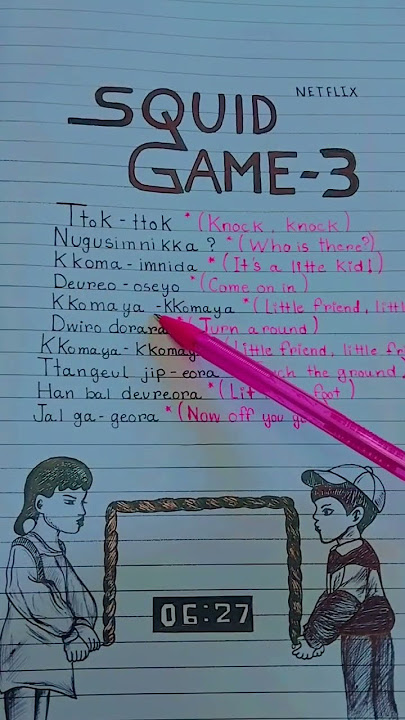 NETFLIX
SQUID
GAME-3
Ttok-ttok *(Knock, knock)
Nugusimnikka? *(Who is there?)
Kkoma-imnida *(It's a litte kid!)
Deureo-oseyo *(Come on in)
Kkomaya-kkomaya *(Little friend, littl
Dwiro dorara *(Turn around)
Kkomaya-kkomay (Little friend, little fr
Ttangeul jip-eora ch the ground,
Han bal deureora *(Lit foot)
Jal ga-geora *(Now off you go
06:27